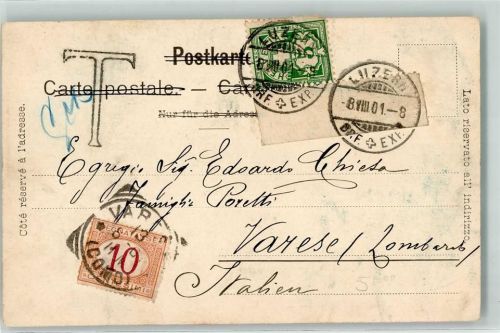 Postkarte
Carte postale.
Nur für die Adresse
Côté réservé à l'adresse.
Lato riservato all' indirizzo.
T
LUZERN
BRF. EXP.
LUZERN
8 VIII 01. - 8
BRF. EXP.
Egregio Sig. Edoardo Chiesa
famiglia Poretti
Varese (Lombardo)
Italien
VARESE
(COMO)
10